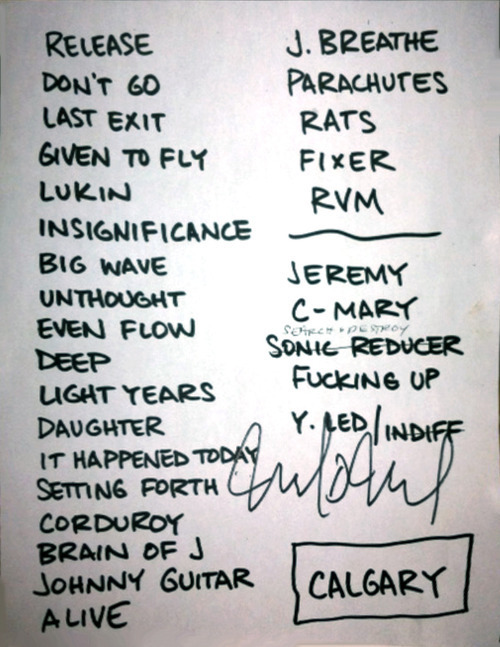 RELEASE
DON'T GO
LAST EXIT
GIVEN TO FLY
LUKIN
INSIGNIFICANCE
BIG WAVE
UNTHOUGHT
EVEN FLOW
DEEP
LIGHT YEARS
DAUGHTER
IT HAPPENED TODAY
SETTING FORTH
CORDUROY
BRAIN OF J
JOHNNY GUITAR
ALIVE
J. BREATHE
PARACHUTES
RATS
FIXER
RVM
JEREMY
C-MARY
SEARCH + DESTROY
SONIC REDUCER
FUCKING UP
Y. LED/INDIFF
CALGARY